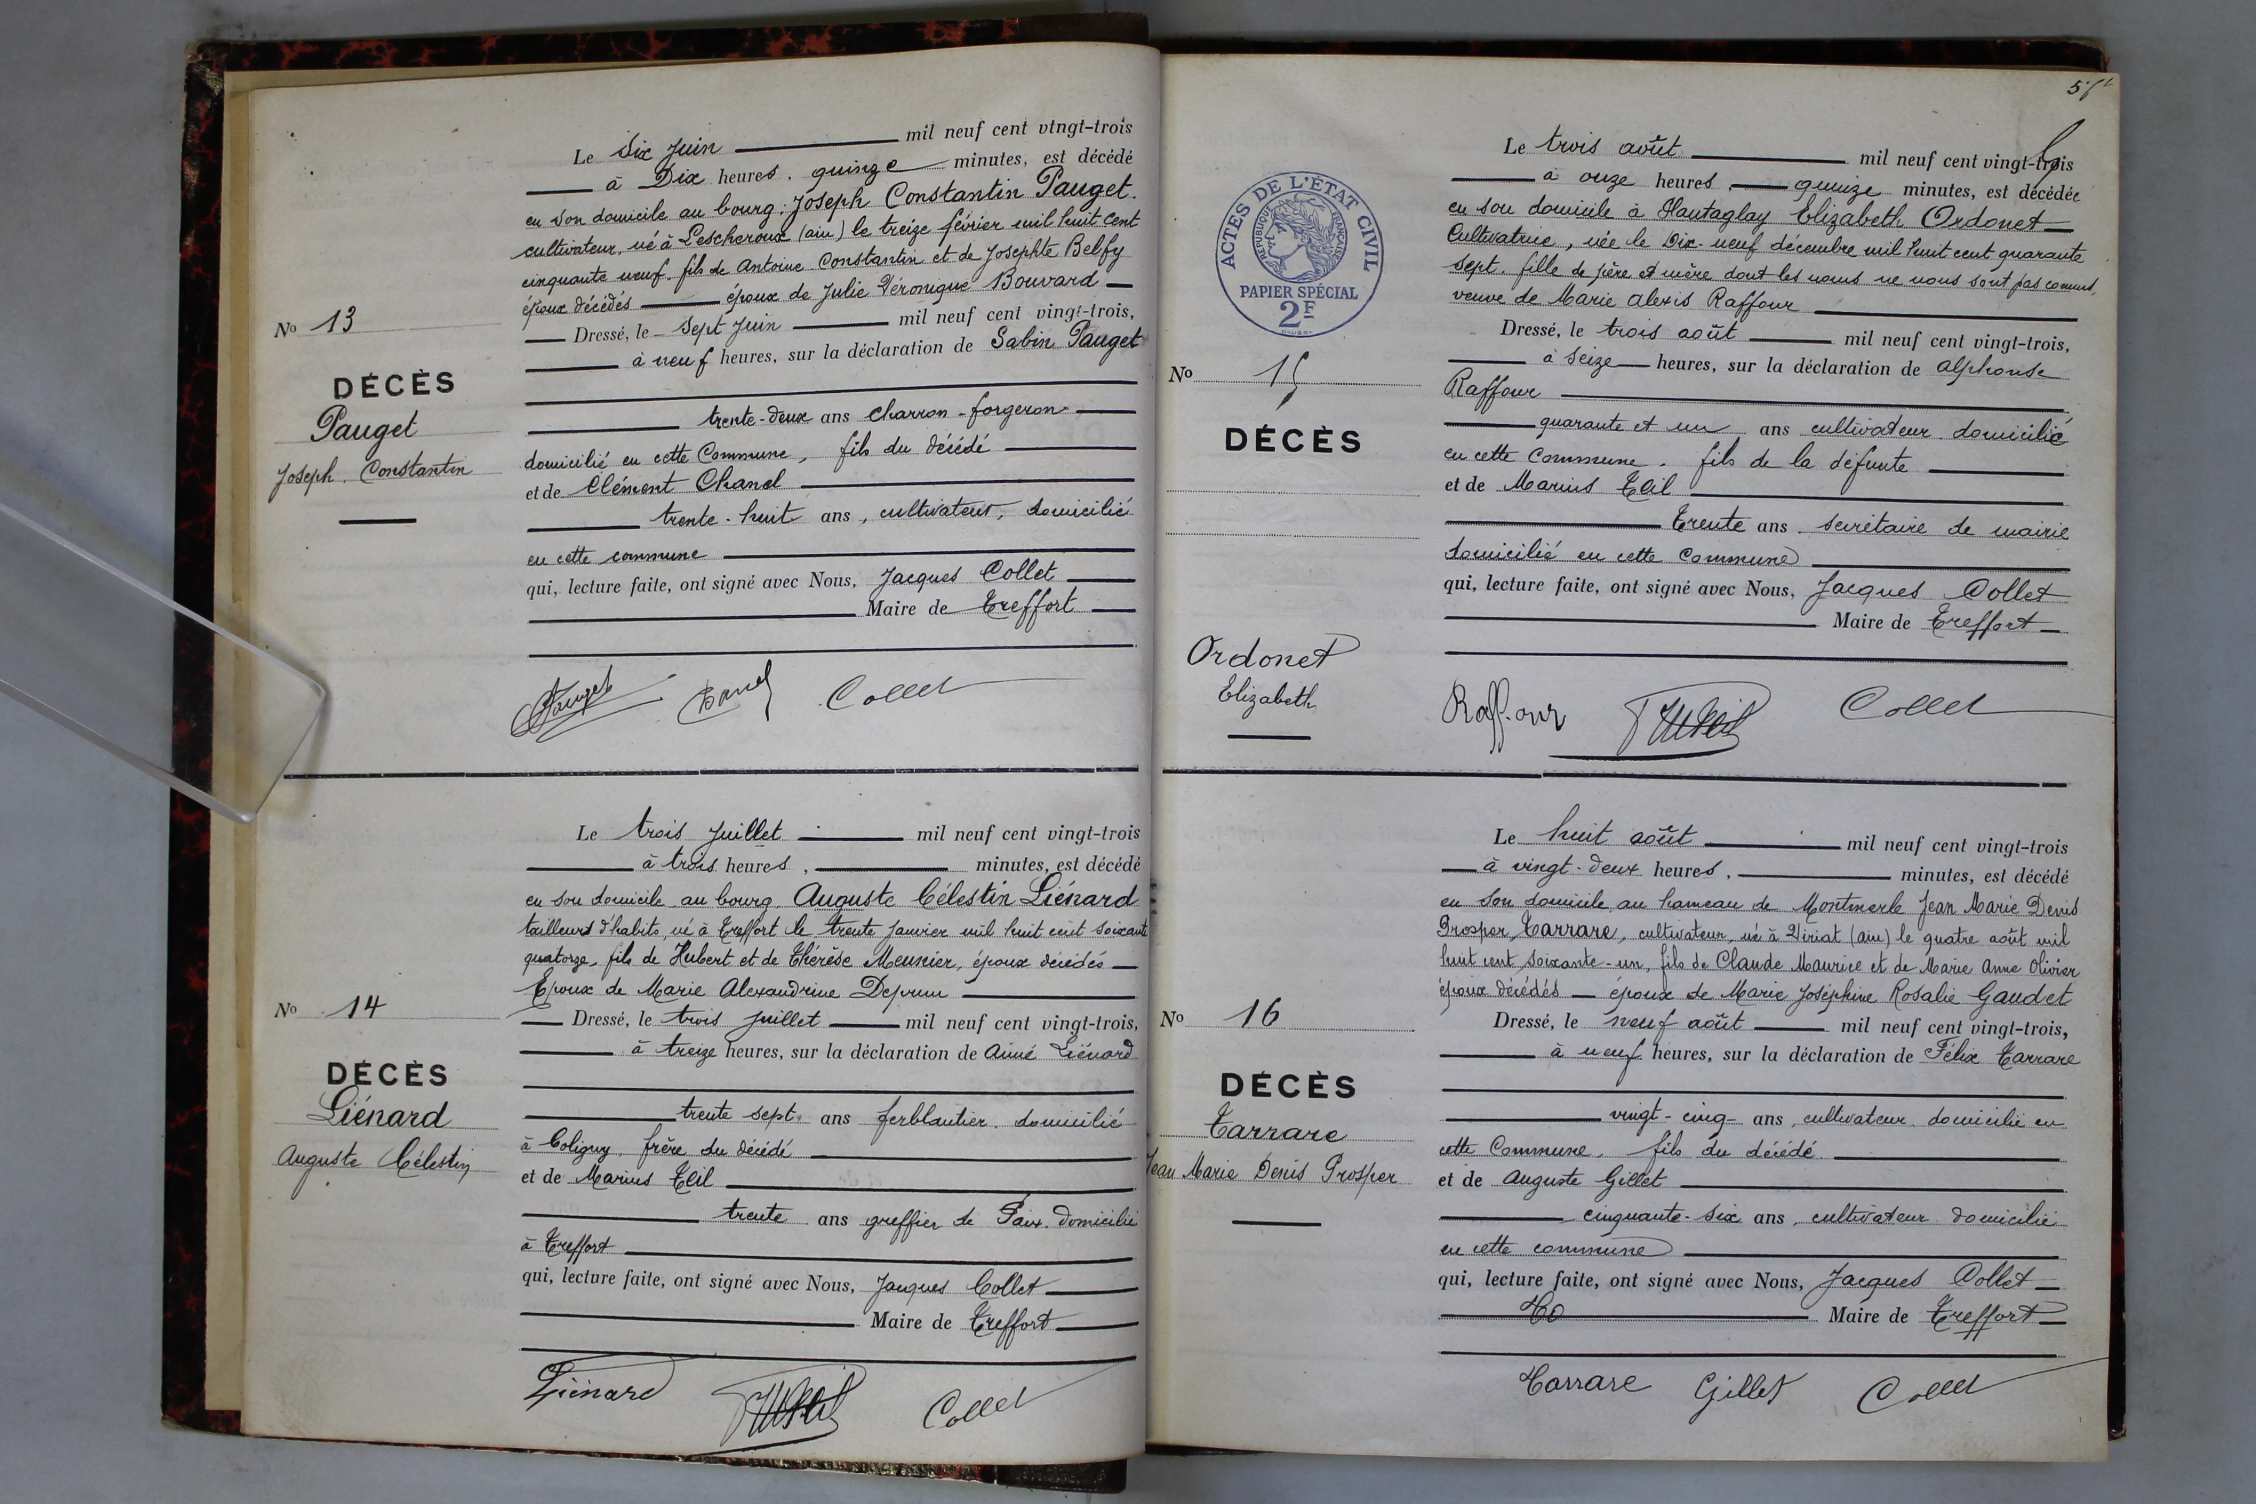 Le six juin mil neuf cent vingt-trois
à Dix heures. quinze minutes, est décédé
en son domicile au bourg: Joseph Constantin Pauget.
cultivateur, né à Lescheroux (ain) le treize février mil huit cent
cinquante neuf. fils de Antoine Constantin et de Josephte
époux décédés époux de Julie Véronique Bouvard
No 13
Dressé, le sept juin mil neuf cent vingt-trois,
à neuf heures, sur la déclaration de Sabin Pauget
DÉCÈS
Pauget
Joseph. Constantin
trente-deux ans charron-forgeron
domicilié en cette Commune, fils du décédé
et de Clément Chanel
trente-huit ans, cultivateur, domicilié
en cette commune
qui, lecture faite, ont signé avec Nous, Jacques Collet
Maire de Treffort
Pauget Chanel Collet
Le trois juillet mil neuf cent vingt-trois
à trois heures, minutes, est décédé
en son domicile au bourg Auguste Célestin Liénard
tailleurs d'habits, né à Treffort le trente janvier mil huit cent soixante
quatorze, fils de Hubert et de Thérèse Meunier, époux décédés
Epoux de Marie Alexandrine
No 14
Dressé, le trois juillet mil neuf cent vingt-trois,
à treize heures, sur la déclaration de Aimé Liénard
DÉCÈS
Liénard
Auguste Célestin
trente sept ans ferblantier. domicilié
à Coligny. frère du décédé
et de Marius Téil
trente ans greffier de Paix. domicilié
à Treffort
qui, lecture faite, ont signé avec Nous, Jacques Collet
Maire de Treffort
Liénard Collet
Le trois août mil neuf cent vingt-trois
à onze heures, quinze minutes, est décédée
en son domicile à Hautaglay Elizabeth Ordonet
Cultivatrice, née le Dix-neuf décembre mil huit cent quarante
sept. fille de père et mère dont les noms ne nous sont pas connus,
veuve de Marie Alexis Raffour
ACTES DE L'ÉTAT CIVIL
RÉPUBLIQUE FRANÇAISE
PAPIER SPÉCIAL
2F
Dressé, le trois août mil neuf cent vingt-trois,
à seize heures, sur la déclaration de Alphonse
Raffour
No 15
DÉCÈS
quarante et un ans cultivateur domicilié
en cette Commune. fils de la défunte
et de Marius Téil
Trente ans. secrétaire de mairie
domicilié en cette Commune
qui, lecture faite, ont signé avec Nous, Jacques Collet
Maire de Treffort
Ordonet
Elizabeth
Raffour Collet
Le huit août mil neuf cent vingt-trois
à vingt-deux heures, minutes, est décédé
en son domicile au hameau de Montmerle Jean Marie Denis
Prosper Tarrare, cultivateur, né à Viriat (ain) le quatre août mil
huit cent soixante-un, fils de Claude Maurice et de Marie Anne Olivier
époux décédés époux de Marie Joséphine Rosalie Gaudet
No 16
Dressé, le neuf août mil neuf cent vingt-trois,
à neuf heures, sur la déclaration de Félix Tarrare
DÉCÈS
Tarrare
Jean Marie Denis Prosper
vingt-cinq ans, cultivateur domicilié en
cette Commune. fils du décédé
et de Auguste Gillet
cinquante-six ans, cultivateur domicilié
en cette commune
qui, lecture faite, ont signé avec Nous, Jacques Collet
Maire de Treffort
Tarrare Gillet Collet